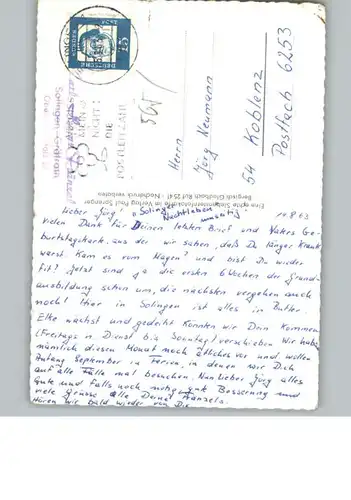 Herrn
Jörg Neumann
54 Koblenz
Postfach 6253
Eine echte Siebengebirgskarte im Verlag Paul Spranger
Bergisch Gladbach Ruf 2541 - Nachdruck verboten
DEUTSCHE
15
DIE
POSTLEITZAHL
Solingen
14.8.63
Lieber Jörg,
Vielen Dank für Deinen letzten Brief und Vaters Ge-
burtstagskark. aus der wir sahen, daß Du länger krank
warst. Kam es vom Magen? und bist Du wieder
fit? Jetzt sind ja die ersten 6 Wochen der Grund-
ausbildung schon um, die nächsten vergehen auch
noch! Hier in Solingen ist alles in Butter.
Elke wächst und gedeiht. Könnten wir Dein Kommen
(Freitags n. Dienst bis Sonntag) verschieben. Wir haben
nämlich diesen Monat noch etliches vor und wollen
Anfang September in Ferien, in denen wir Dich
auf alle Fälle mal besuchen. Nun Lieber Jörg alles
Gute und falls noch nötig gute Besserung und
viele Grüsse alle Deine
Hören wir bald wieder von Dir